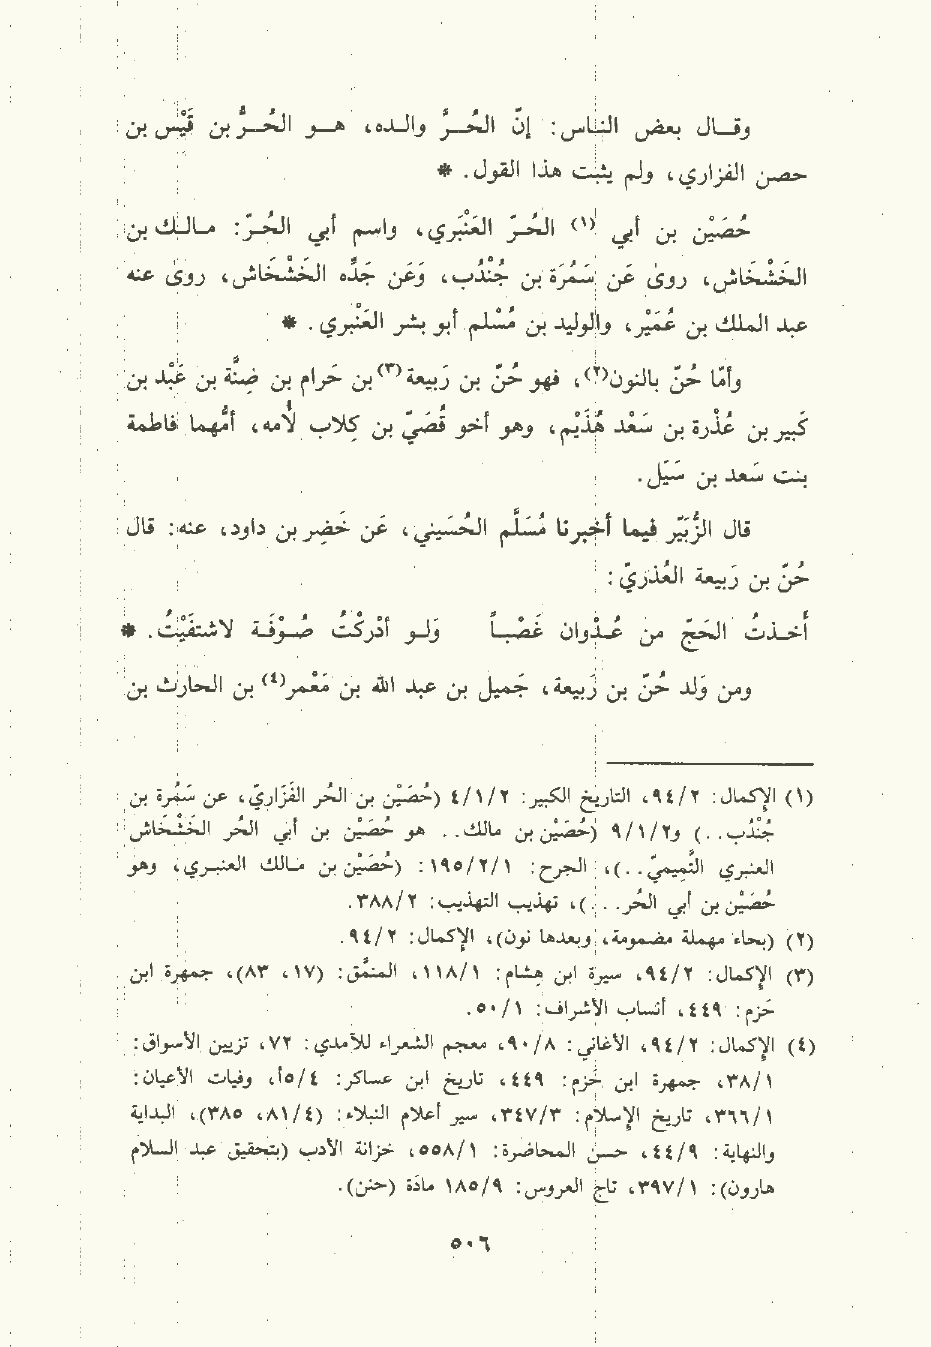 وقال بعض الناس: إنّ الحُرَّ والده، هو الحُرُّ بن قَيْس بن
حصن الفزاري، ولم يثبت هذا القول. *
حُصَيْن بن أبي (١) الحُرّ العَنْبَري، واسم أبي الحُرّ: مالك بن
الخَشْخَاش، روىٰ عَن سَمُرَة بن جُنْدُب، وَعَن جَدِّه الخَشْخَاش، روىٰ عنه
عبد الملك بن عُمَيْر، والوليد بن مُسْلم أبو بشر العَنْبري. *
وأمّا حُنّ بالنون(٢)، فهو حُنّ بن رَبيعة(٣) بن حَرام بن ضِنَّة بن عَبْد بن
كَبير بن عُذْرة بن سَعْد هُذَيْم، وهو أخو قُصَيّ بن كِلاب لأُمه، أمّهما فاطمة
بنت سَعد بن سَيَل.
قال الزُّبَيْر فيما أخبرنا مُسَلَّم الحُسَيني، عَن خَضِر بن داود، عنه: قال
حُنّ بن رَبيعة العُذريّ:
أُخذتُ الحَجّ من عُذوان غَصْباً ولو أدْركْتُ صُوْفَة لاشتفَيْتُ. *
ومن وَلد حُنّ بن رَبيعة، جَميل بن عبد الله بن مَعْمر(٤) بن الحارث بن
(١) الإكمال: ٩٤/٢، التاريخ الكبير: ٤/١/٢ (حُصَيْن بن الحُر الفَزَاريّ، عن سَمُرة بن
جُنْدُب..) و٩/١/٢ (حُصَيْن بن مالك.. هو حُصَيْن بن أبي الحُر الخَشْخَاش
العنبري التَّمِيميّ..)، الجرح: ١٩٥/٢/١: (حُصَيْن بن مالك العنبري، وهو
حُصَيْن بن أبي الحُر...)، تهذيب التهذيب: ٣٨٨/٢.
(٢) (بحاء مهملة مضمومة، وبعدها نون)، الإكمال: ٩٤/٢.
(٣) الإكمال: ٩٤/٢، سيرة ابن هشام: ١١٨/١، المنمَّق: (١٧، ٨٣)، جمهرة ابن
حَزم: ٤٤٩، أنساب الأشراف: ٥٠/١.
(٤) الإكمال: ٩٤/٢، الأغاني: ٩٠/٨، معجم الشعراء للآمدي: ٧٢، تزيين الأسواق:
٣٨/١، جمهرة ابن حزم: ٤٤٩، تاريخ ابن عساكر: ٥/٤أ، وفيات الأعيان:
٣٦٦/١، تاريخ الإسلام: ٣٤٧/٣، سير أعلام النبلاء: (٨١/٤، ٣٨٥)، البداية
والنهاية: ٤٤/٩، حسن المحاضرة: ٥٥٨/١، خزانة الأدب (بتحقيق عبد السلام
هارون): ٣٩٧/١، تاج العروس: ١٨٥/٩ مادّة (حنن).
٥٠٦